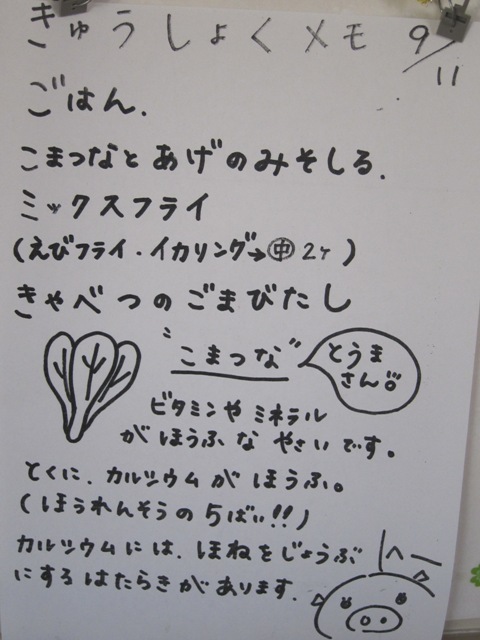 きゅうしょくメモ 9/11
ごはん.
こまつなとあげのみそしる.
ミックスフライ
(えびフライ・イカリング→㊥2ヶ)
きゃべつのごまびたし
"こまつな"
とうま
さん。
ビタミンや ミネラル
がほうふな やさいです。
とくに、カルシウムが ほうふ。
(ほうれんそうの5ばい!!)
カルシウムには、ほねをじょうぶ
にするはたらきが あります.
へー